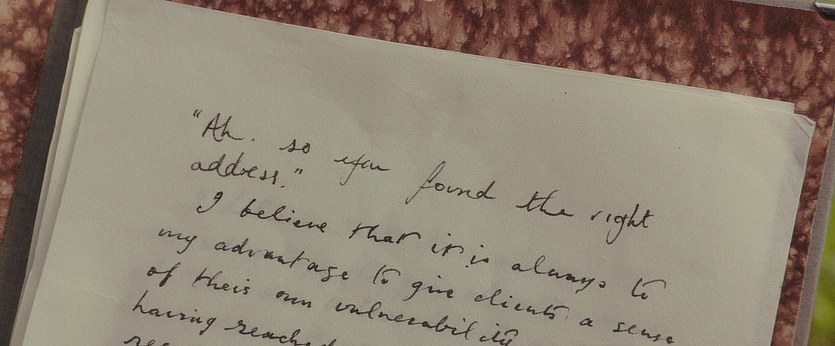 "Ah. so you found the right
address."
I believe that it is always to
my advantage to give clients a sense
of their own vulnerability
having reached